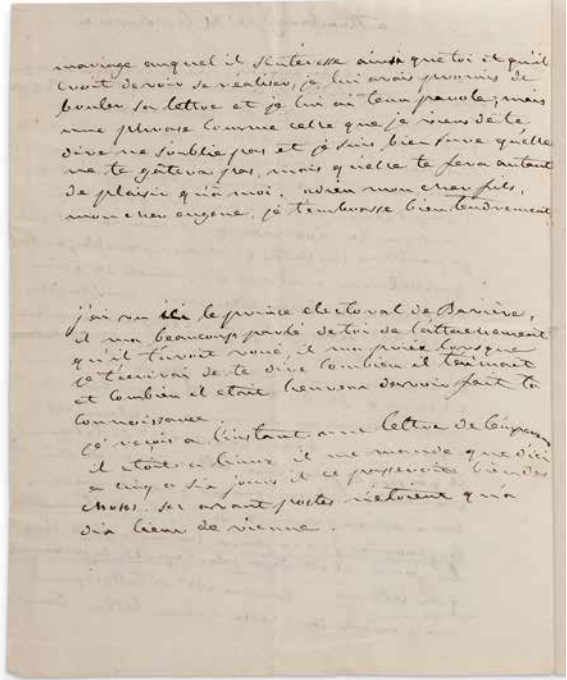 mariage auquel il s'interesse ainsi que toi et qu'il
croit devoir se réaliser, je lui avais promis de
bruler sa lettre et je lui ai tenu parole; mais
une phrase comme celle que je viens de te
dire ne s'oublie pas et je suis bien sure qu'elle
ne te gâtera pas, mais qu'elle te fera autant
de plaisir qu'a moi. adieu mon cher fils,
mon cher eugene, je t'embrasse bien tendrement
j'ai vu ici le prince electoral de Bavière,
il m'a beaucoup parlé de toi de l'attachement
qu'il t'avoit voué, il m'a priée lorsque
je t'écrirai de te dire combien il t'aimait
et combien il etait heureux d'avoir fait ta
connoissance.
je reçois a l'instant une lettre de l'empereur
il étoit a lintz il me mande que d'ici
a cinq a six jours il se passeroit bien des
choses. ses avant postes n'etoient qu'a
dix lieux de vienne.